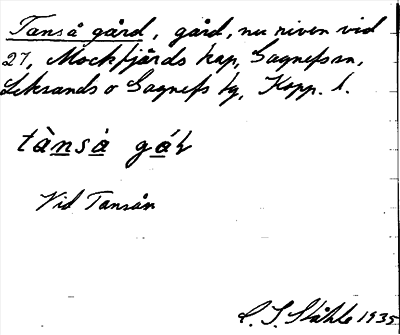 Tanså gård, gård, nu riven vid
27, Mockfjärds kap, Gagnefs sn,
Leksands o Gagnefs tg, Kopp. l.
tànsȧ gáḷ
Vid Tansån
C. I. Ståhle 1935